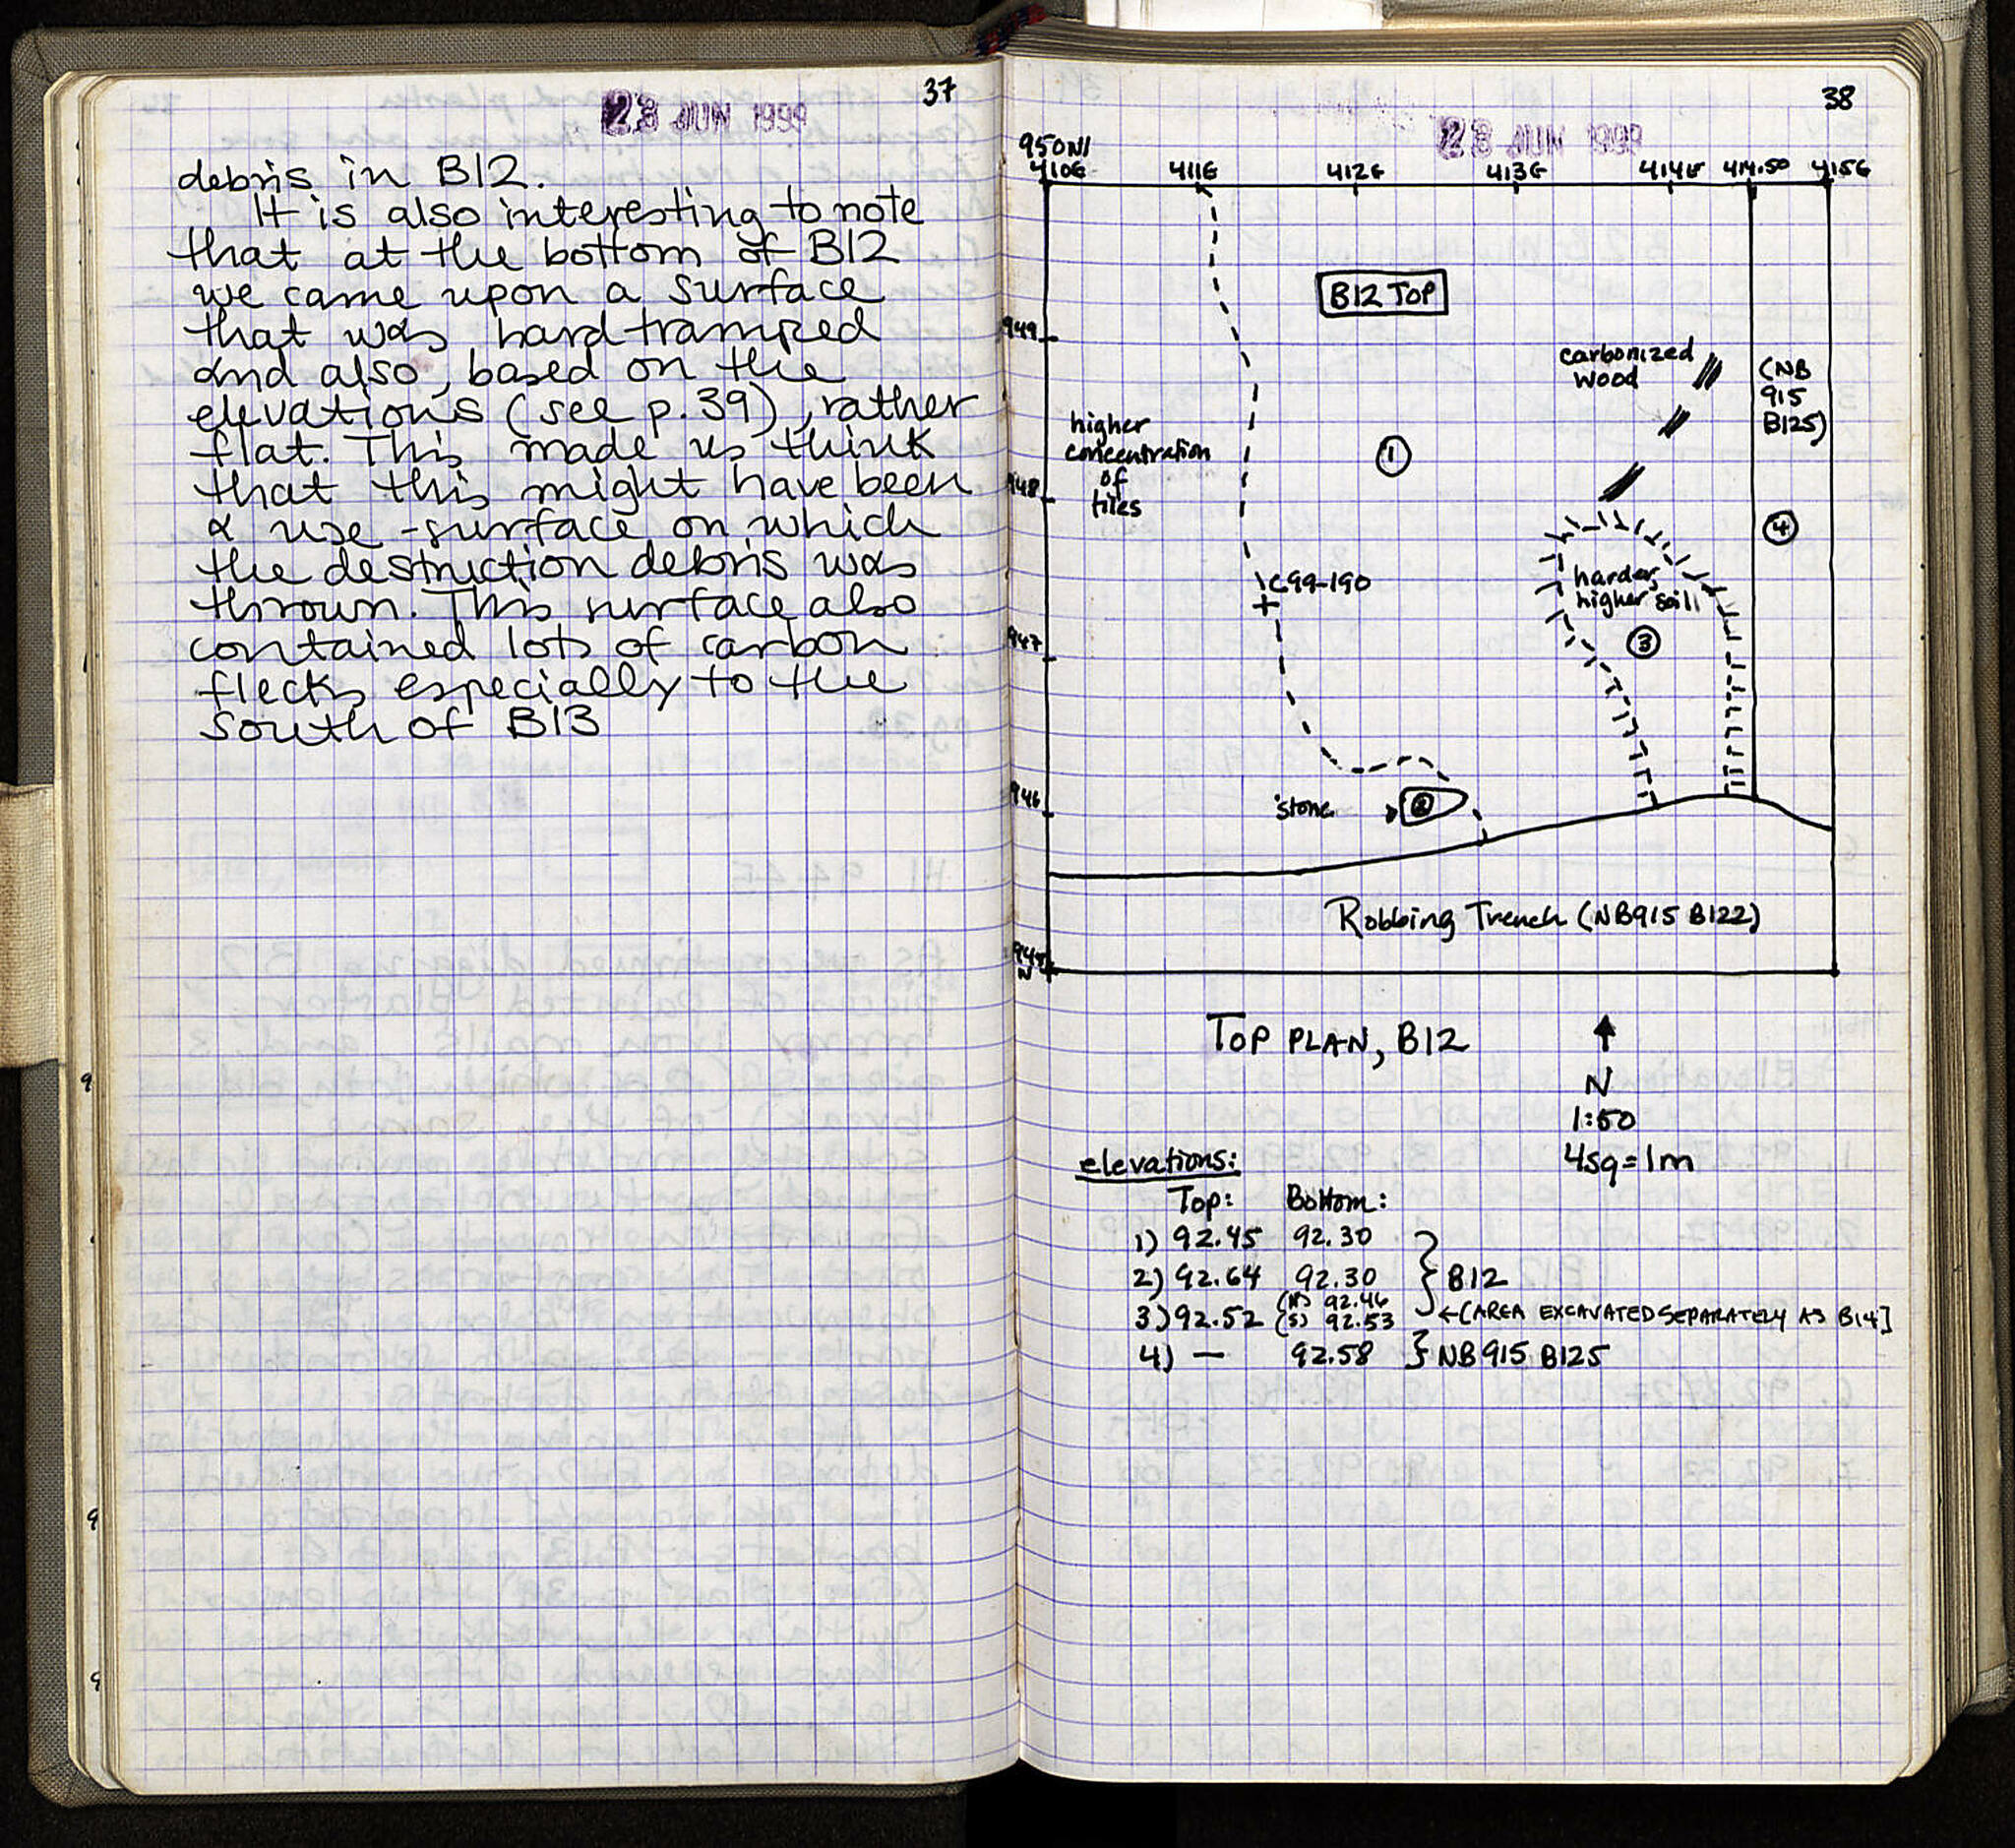 37
23 JUN 1999
debris in B12.
It is also interesting to note
that at the bottom of B12
we came upon a surface
that was hard tramped
and also, based on the
elevations (see p.39), rather
flat. This made us think
that this might have been
a use-surface on which
the destruction debris was
thrown. This surface also
contained lots of carbon
flecks especially to the
south of B13
38
23 JUN 1999
950N/
410E 411E 412E 413E 414E 414.50 415E
B12 TOP
949
carbonized
wood
(NB
915
B125)
higher
concentration
of
tiles
1
948
4
C99-190
harder,
higher soil
3
947
946
stone
2
Robbing Trench (NB915 B122)
945
N
TOP PLAN, B12
N
1:50
4sq=1m
elevations:
Top: Bottom:
1) 92.45 92.30
2) 92.64 92.30 } B12
3) 92.52 (N) 92.46
(S) 92.53 ←[AREA EXCAVATED SEPARATELY AS B14]
4) — 92.58 } NB915 B125